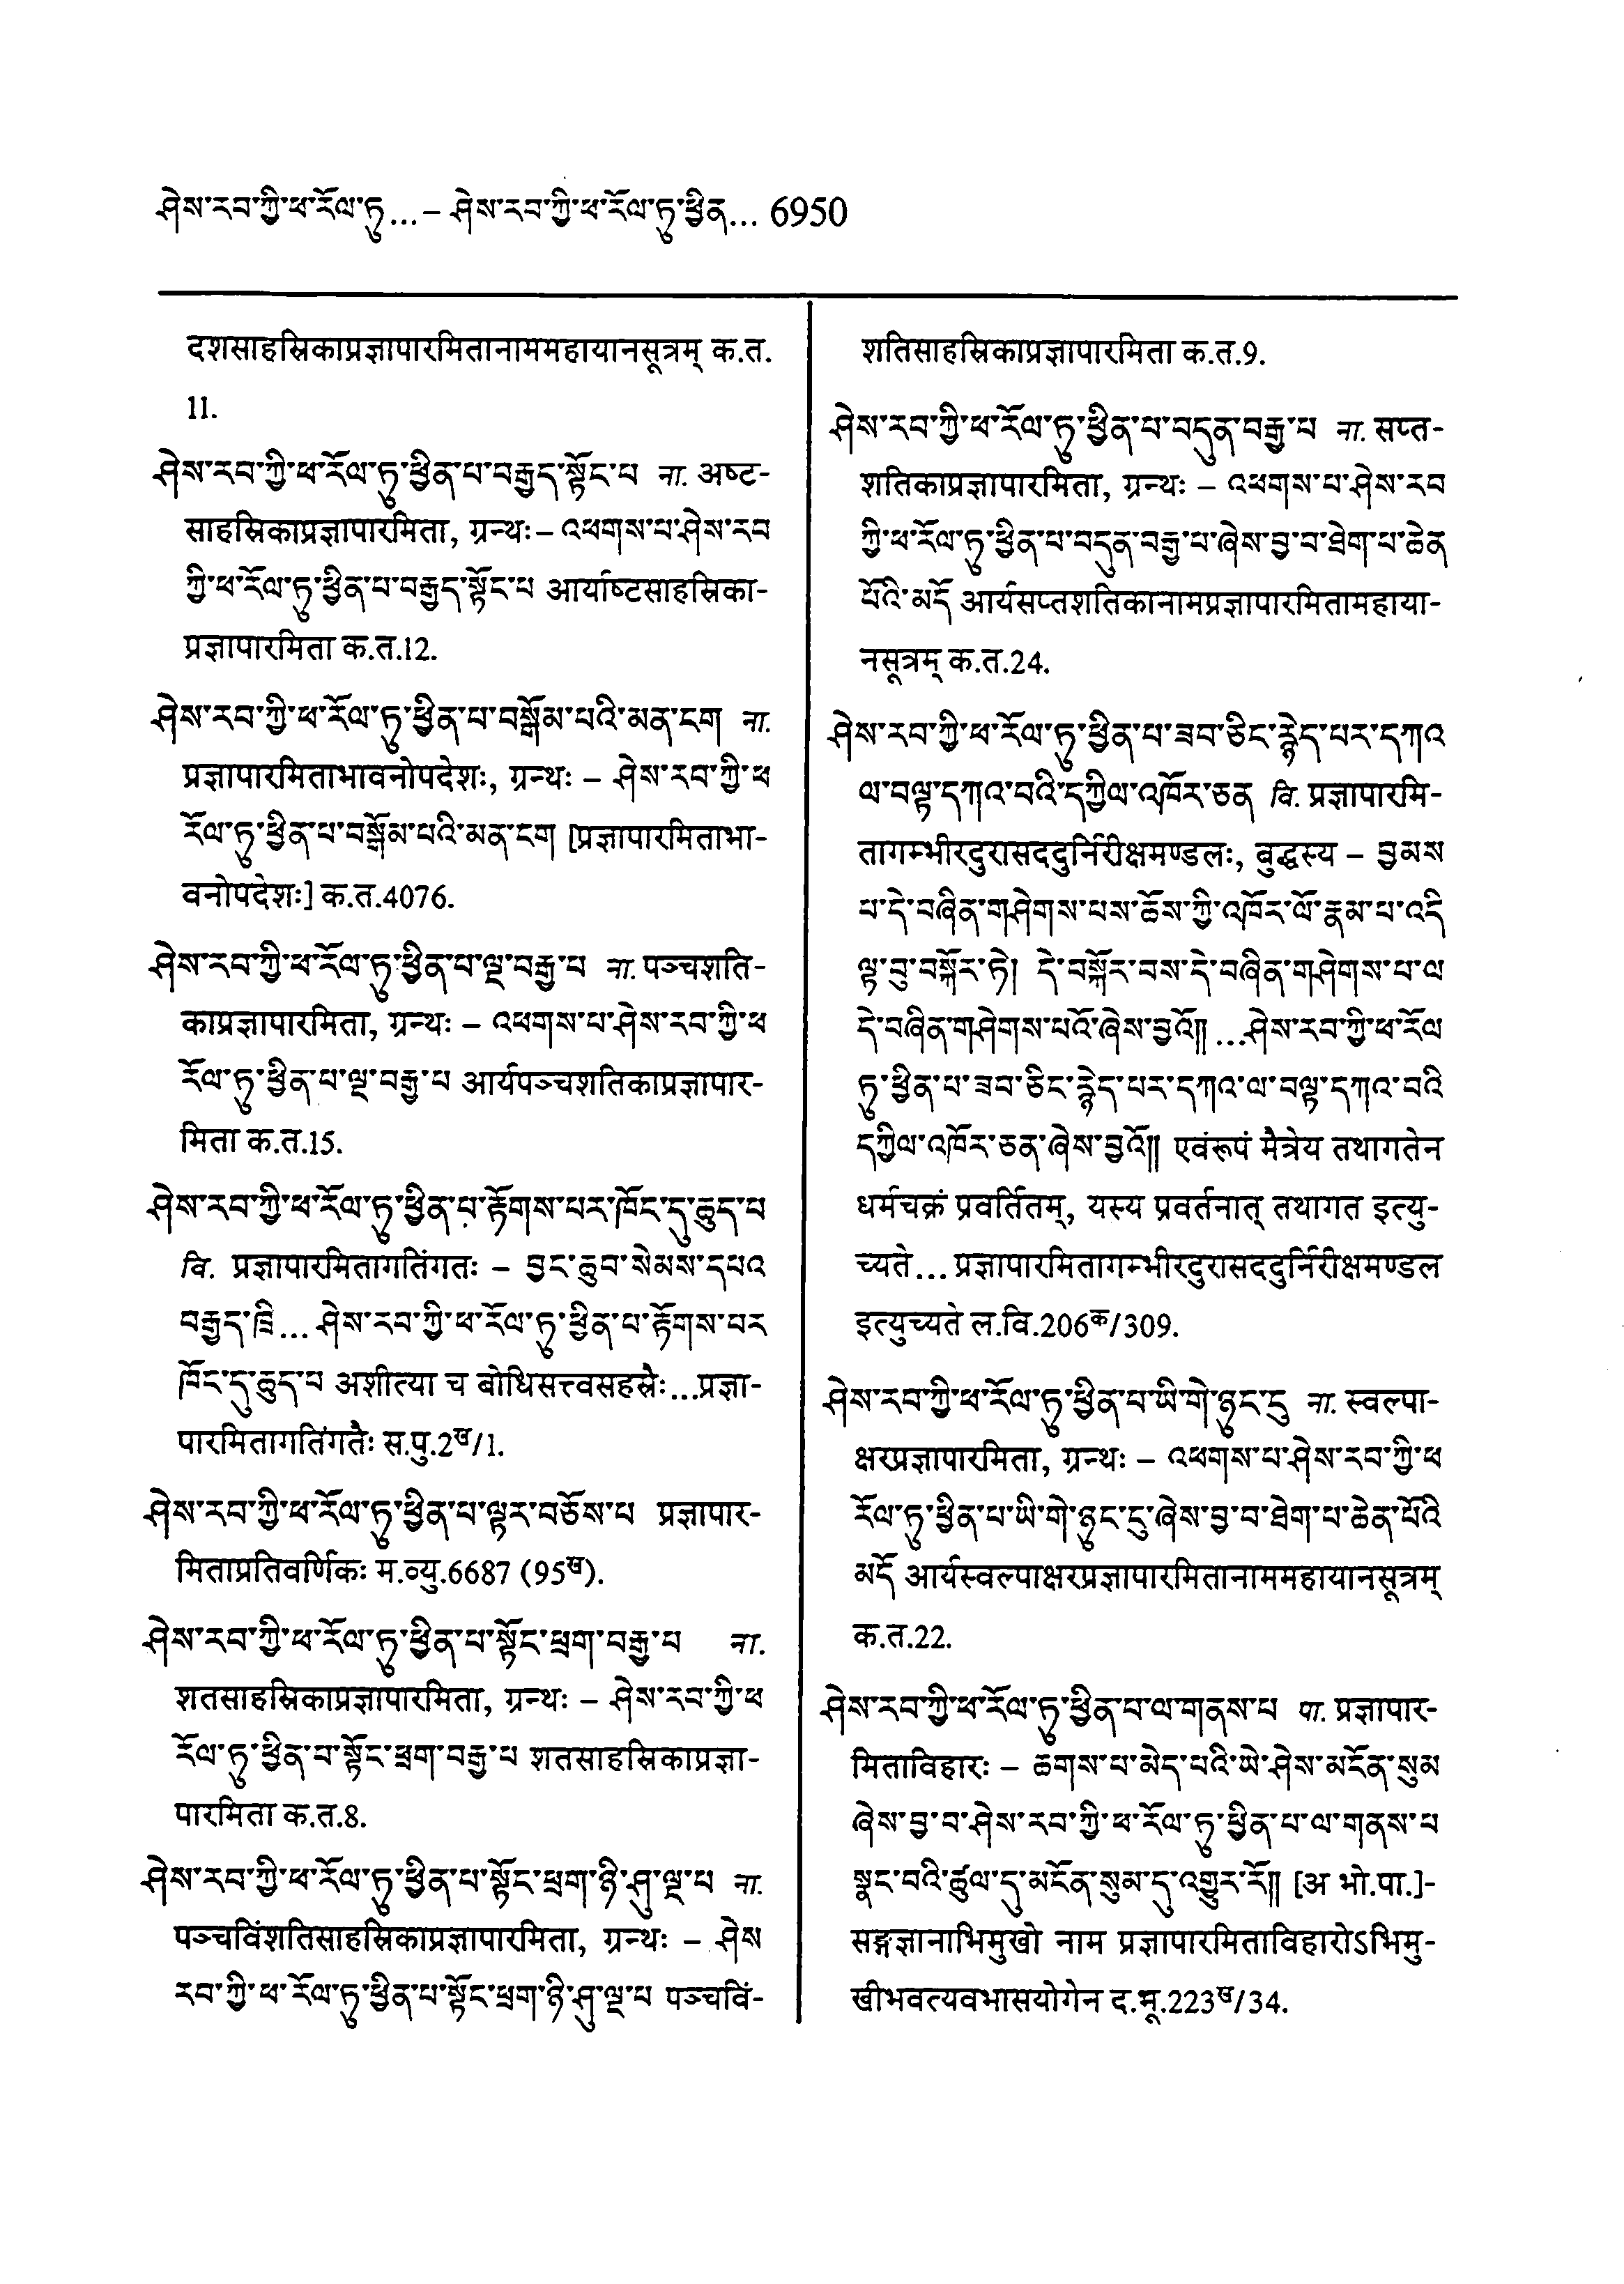 ཤེས་རབ་ཀྱི་ཕ་རོལ་ཏུ...– ཤེས་རབ་ཀྱི་ཕ་རོལ་ཏུ་ཕྱིན... 6950
दशसाहस्रिकाप्रज्ञापारमितानाममहायानसूत्रम् क.त.
11.
ཤེས་རབ་ཀྱི་ཕ་རོལ་ཏུ་ཕྱིན་པ་བརྒྱད་སྟོང་པ ना. अष्ट-
साहस्रिकाप्रज्ञापारमिता, ग्रन्थः – འཕགས་པ་ཤེས་རབ
ཀྱི་ཕ་རོལ་ཏུ་ཕྱིན་པ་བརྒྱད་སྟོང་པ आर्याष्टसाहस्रिका-
प्रज्ञापारमिता क.त.12.
ཤེས་རབ་ཀྱི་ཕ་རོལ་ཏུ་ཕྱིན་པ་བསྒོམ་པའི་མན་ངག ना.
प्रज्ञापारमिताभावनोपदेशः, ग्रन्थः – ཤེས་རབ་ཀྱི་ཕ
རོལ་ཏུ་ཕྱིན་པ་བསྒོམ་པའི་མན་ངག [प्रज्ञापारमिताभा-
वनोपदेशः] क.त.4076.
ཤེས་རབ་ཀྱི་ཕ་རོལ་ཏུ་ཕྱིན་པ་ལྔ་བརྒྱ་པ ना. पञ्चशति-
काप्रज्ञापारमिता, ग्रन्थः – འཕགས་པ་ཤེས་རབ་ཀྱི་ཕ
རོལ་ཏུ་ཕྱིན་པ་ལྔ་བརྒྱ་པ आर्यपञ्चशतिकाप्रज्ञापार-
मिता क.त.15.
ཤེས་རབ་ཀྱི་ཕ་རོལ་ཏུ་ཕྱིན་པ་རྟོགས་པར་ཁོང་དུ་ཆུད་པ
वि. प्रज्ञापारमितागतिंगतः – བྱང་ཆུབ་སེམས་དཔའ
བརྒྱད་ཁྲི... ཤེས་རབ་ཀྱི་ཕ་རོལ་ཏུ་ཕྱིན་པ་རྟོགས་པར
ཁོང་དུ་ཆུད་པ अशीत्या च बोधिसत्त्वसहस्रैः...प्रज्ञा-
पारमितागतिंगतैः स.पु.2ख/1.
ཤེས་རབ་ཀྱི་ཕ་རོལ་ཏུ་ཕྱིན་པ་ལྟར་བཅོས་པ प्रज्ञापार-
मिताप्रतिवर्णिकः म.व्यु.6687 (95ख).
ཤེས་རབ་ཀྱི་ཕ་རོལ་ཏུ་ཕྱིན་པ་སྟོང་ཕྲག་བརྒྱ་པ ना.
शतसाहस्रिकाप्रज्ञापारमिता, ग्रन्थः – ཤེས་རབ་ཀྱི་ཕ
རོལ་ཏུ་ཕྱིན་པ་སྟོང་ཕྲག་བརྒྱ་པ शतसाहस्रिकाप्रज्ञा-
पारमिता क.त.8.
ཤེས་རབ་ཀྱི་ཕ་རོལ་ཏུ་ཕྱིན་པ་སྟོང་ཕྲག་ཉི་ཤུ་ལྔ་པ ना.
पञ्चविंशतिसाहस्रिकाप्रज्ञापारमिता, ग्रन्थः – ཤེས
རབ་ཀྱི་ཕ་རོལ་ཏུ་ཕྱིན་པ་སྟོང་ཕྲག་ཉི་ཤུ་ལྔ་པ पञ्चविं-
शतिसाहस्रिकाप्रज्ञापारमिता क.त.9.
ཤེས་རབ་ཀྱི་ཕ་རོལ་ཏུ་ཕྱིན་པ་བདུན་བརྒྱ་པ ना. सप्त-
शतिकाप्रज्ञापारमिता, ग्रन्थः – འཕགས་པ་ཤེས་རབ
ཀྱི་ཕ་རོལ་ཏུ་ཕྱིན་པ་བདུན་བརྒྱ་པ་ཞེས་བྱ་བ་ཐེག་པ་ཆེན
པོའི་མདོ आर्यसप्तशतिकानामप्रज्ञापारमितामहाया-
नसूत्रम् क.त.24.
ཤེས་རབ་ཀྱི་ཕ་རོལ་ཏུ་ཕྱིན་པ་ཟབ་ཅིང་རྙེད་པར་དཀའ
ལ་བལྟ་དཀའ་བའི་དཀྱིལ་འཁོར་ཅན वि. प्रज्ञापारमि-
तागम्भीरदुरासददुर्निरीक्षमण्डलः, बुद्धस्य – བྱམས
པ་དེ་བཞིན་གཤེགས་པས་ཆོས་ཀྱི་འཁོར་ལོ་རྣམ་པ་འདི
ལྟ་བུ་བསྐོར་ཏེ། དེ་བསྐོར་བས་དེ་བཞིན་གཤེགས་པ་ལ
དེ་བཞིན་གཤེགས་པའོ་ཞེས་བྱའོ།། ...ཤེས་རབ་ཀྱི་ཕ་རོལ
ཏུ་ཕྱིན་པ་ཟབ་ཅིང་རྙེད་པར་དཀའ་ལ་བལྟ་དཀའ་བའི
དཀྱིལ་འཁོར་ཅན་ཞེས་བྱའོ།། एवंरूपं मैत्रेय तथागतेन
धर्मचक्रं प्रवर्तितम्, यस्य प्रवर्तनात् तथागत इत्यु-
च्यते... प्रज्ञापारमितागम्भीरदुरासददुर्निरीक्षमण्डल
इत्युच्यते ल.वि.206क/309.
ཤེས་རབ་ཀྱི་ཕ་རོལ་ཏུ་ཕྱིན་པ་ཡི་གེ་ཉུང་ངུ ना. स्वल्पा-
क्षरप्रज्ञापारमिता, ग्रन्थः – འཕགས་པ་ཤེས་རབ་ཀྱི་ཕ
རོལ་ཏུ་ཕྱིན་པ་ཡི་གེ་ཉུང་ངུ་ཞེས་བྱ་བ་ཐེག་པ་ཆེན་པོའི
མདོ आर्यस्वल्पाक्षरप्रज्ञापारमितानाममहायानसूत्रम्
क.त.22.
ཤེས་རབ་ཀྱི་ཕ་རོལ་ཏུ་ཕྱིན་པ་ལ་གནས་པ पा. प्रज्ञापार-
मिताविहारः – ཆགས་པ་མེད་པའི་ཡེ་ཤེས་མངོན་སུམ
ཞེས་བྱ་བ་ཤེས་རབ་ཀྱི་ཕ་རོལ་ཏུ་ཕྱིན་པ་ལ་གནས་པ
སྣང་བའི་ཚུལ་དུ་མངོན་སུམ་དུ་འགྱུར་རོ།། [अ भो.पा.]-
सङ्गज्ञानाभिमुखो नाम प्रज्ञापारमिताविहारोऽभिमु-
खीभवत्यवभासयोगेन द.भू.223ख/34.